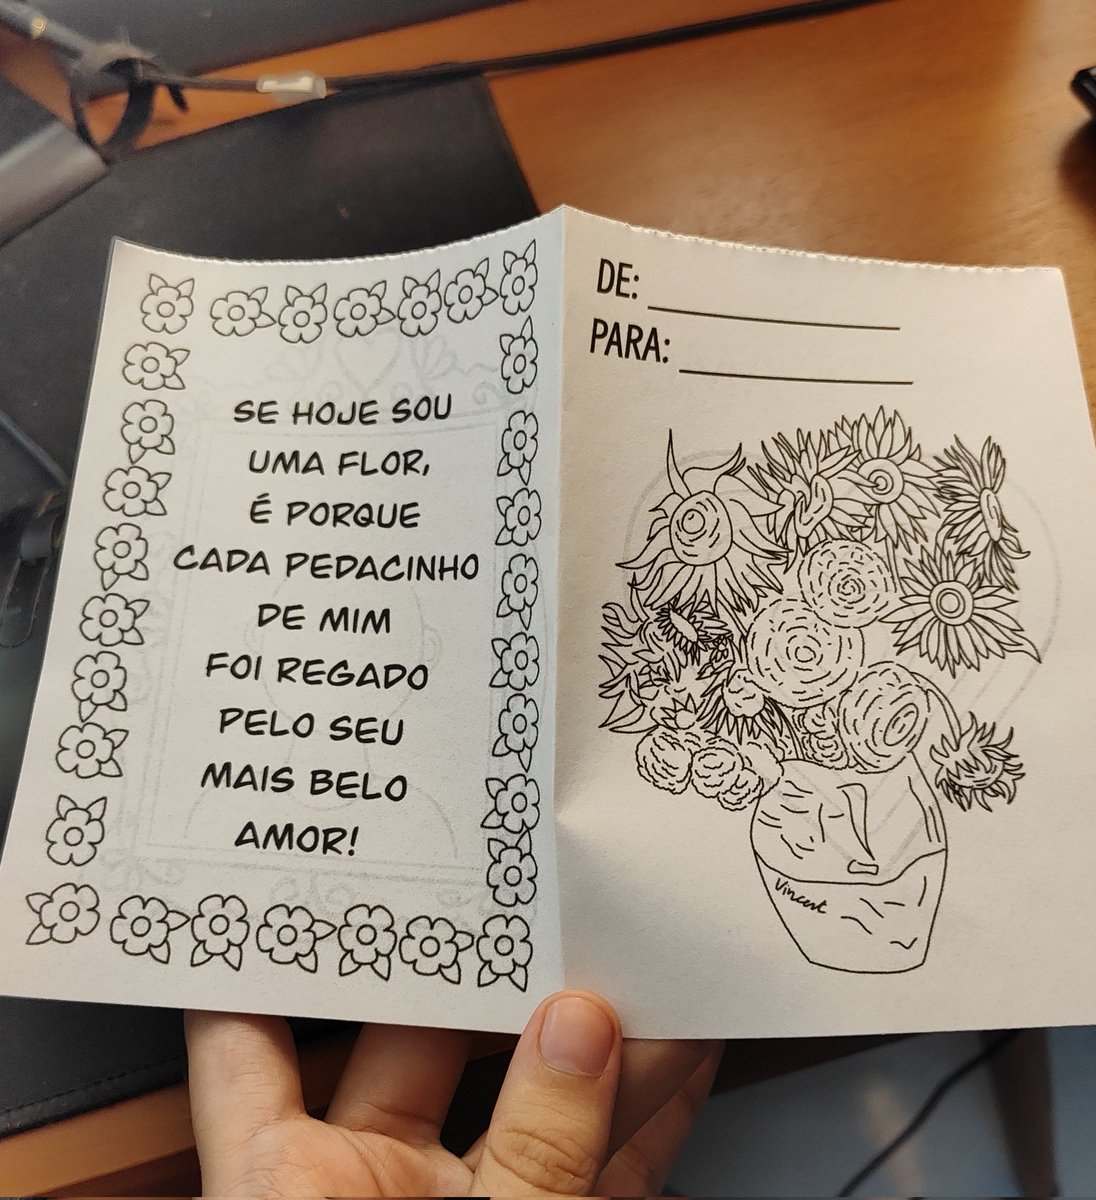 SE HOJE SOU
UMA FLOR,
É PORQUE
CADA PEDACINHO
DE MIM
FOI REGADO
PELO SEU
MAIS BELO
AMOR!
DE:
PARA:
Vincent